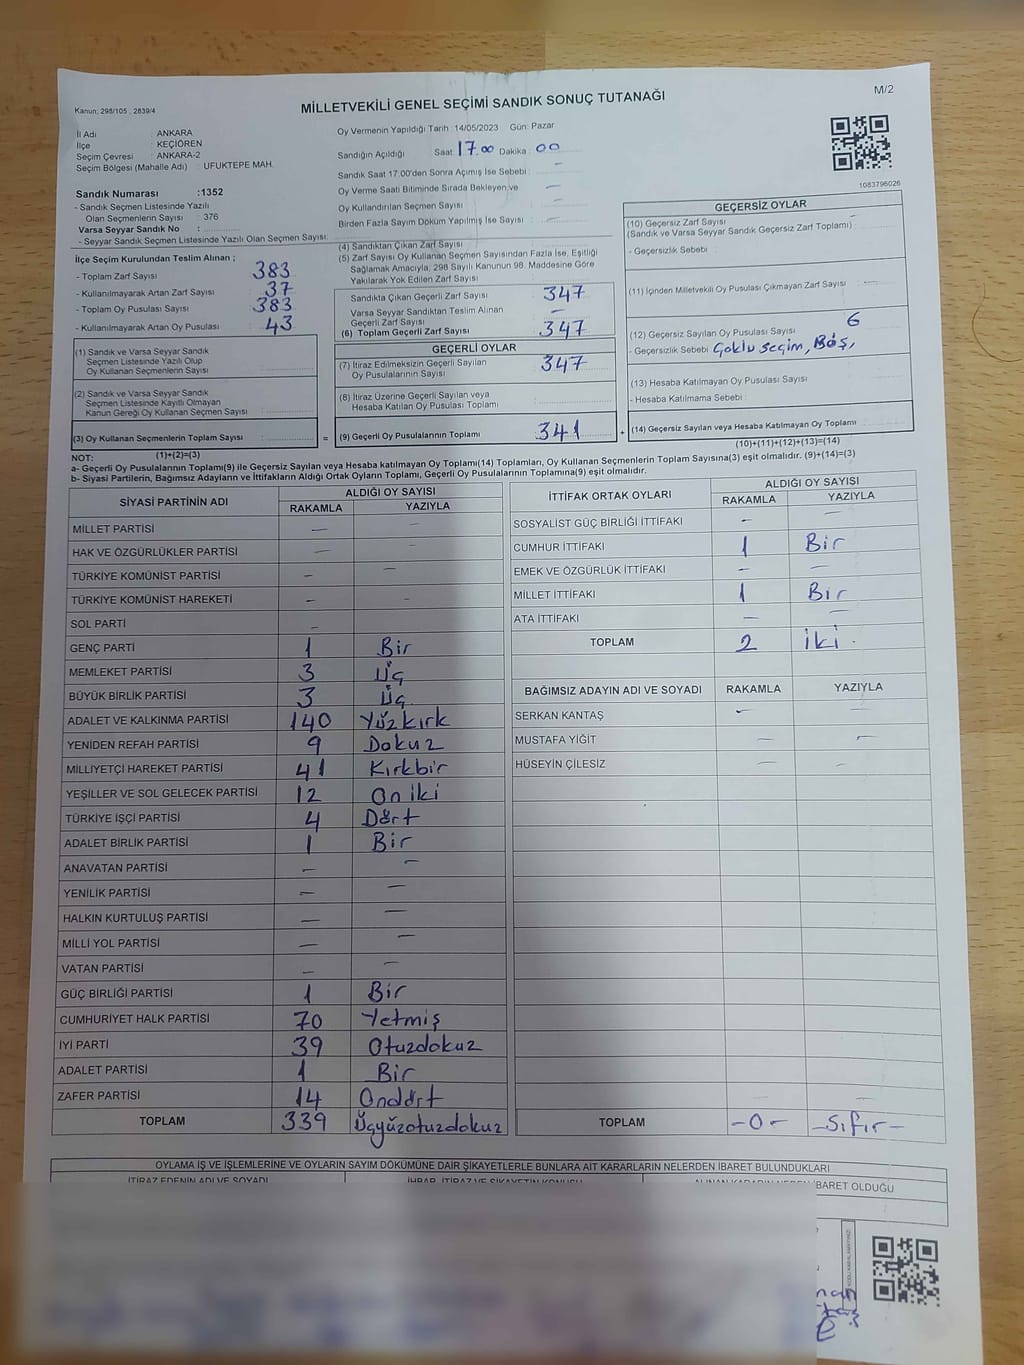 Kanun: 298/105 , 2839/4
MİLLETVEKİLİ GENEL SEÇİMİ SANDIK SONUÇ TUTANAĞI
M/2
İl Adı : ANKARA
İlçe : KEÇİÖREN
Seçim Çevresi : ANKARA-2
Seçim Bölgesi (Mahalle Adı) : UFUKTEPE MAH.
Sandık Numarası :1352
- Sandık Seçmen Listesinde Yazılı
Olan Seçmenlerin Sayısı : 376
Varsa Seyyar Sandık No :
- Seyyar Sandık Seçmen Listesinde Yazılı Olan Seçmen Sayısı:
Oy Vermenin Yapıldığı Tarih :14/05/2023 Gün: Pazar
Sandığın Açıldığı Saat 17.00 Dakika : 00
Sandık Saat 17.00'den Sonra Açımış İse Sebebi : –
Oy Verme Saati Bitiminde Sırada Bekleyen,ve –
Oy Kullandırılan Seçmen Sayısı : –
Birden Fazla Sayım Döküm Yapılmış İse Sayısı : –
1083796026
İlçe Seçim Kurulundan Teslim Alınan ;
- Toplam Zarf Sayısı 383
- Kullanılmayarak Artan Zarf Sayısı 37
- Toplam Oy Pusulası Sayısı 383
- Kullanılmayarak Artan Oy Pusulası 43
(1) Sandık ve Varsa Seyyar Sandık
Seçmen Listesinde Yazılı Olup
Oy Kullanan Seçmenlerin Sayısı :
(2) Sandık ve Varsa Seyyar Sandık
Seçmen Listesinde Kayıtlı Olmayan
Kanun Gereği Oy Kullanan Seçmen Sayısı :
(3) Oy Kullanan Seçmenlerin Toplam Sayısı :
(4) Sandıktan Çıkan Zarf Sayısı :
(5) Zarf Sayısı Oy Kullanan Seçmen Sayısından Fazla İse, Eşitliği
Sağlamak Amacıyla, 298 Sayılı Kanunun 98. Maddesine Göre
Yakılarak Yok Edilen Zarf Sayısı :
Sandıkta Çıkan Geçerli Zarf Sayısı 347
Varsa Seyyar Sandıktan Teslim Alınan
Geçerli Zarf Sayısı : –
(6) Toplam Geçerli Zarf Sayısı 347
GEÇERLİ OYLAR
(7) İtiraz Edilmeksizin Geçerli Sayılan
Oy Pusulalarının Sayısı 347
(8) İtiraz Üzerine Geçerli Sayılan veya
Hesaba Katılan Oy Pusulası Toplamı
= (9) Geçerli Oy Pusulalarının Toplamı 341 +
GEÇERSİZ OYLAR
(10) Geçersiz Zarf Sayısı –
(Sandık ve Varsa Seyyar Sandık Geçersiz Zarf Toplamı) :
- Geçersizlik Sebebi :
(11) İçinden Milletvekili Oy Pusulası Çıkmayan Zarf Sayısı : –
(12) Geçersiz Sayılan Oy Pusulası Sayısı 6
- Geçersizlik Sebebi Çoklu seçim, Boş,
(13) Hesaba Katılmayan Oy Pusulası Sayısı
- Hesaba Katılmama Sebebi :
(14) Geçersiz Sayılan veya Hesaba Katılmayan Oy Toplamı
(1)+(2)=(3)
(10)+(11)+(12)+(13)=(14)
NOT:
a- Geçerli Oy Pusulalarının Toplamı(9) ile Geçersiz Sayılan veya Hesaba katılmayan Oy Toplamı(14) Toplamları, Oy Kullanan Seçmenlerin Toplam Sayısına(3) eşit olmalıdır. (9)+(14)=(3)
b- Siyasi Partilerin, Bağımsız Adayların ve İttifakların Aldığı Ortak Oyların Toplamı, Geçerli Oy Pusulalarının Toplamına(9) eşit olmalıdır.
SİYASİ PARTİNİN ADI
ALDIĞI OY SAYISI
RAKAMLA YAZIYLA
MİLLET PARTİSİ – –
HAK VE ÖZGÜRLÜKLER PARTİSİ – –
TÜRKİYE KOMÜNİST PARTİSİ – –
TÜRKİYE KOMÜNİST HAREKETİ – –
SOL PARTİ –
GENÇ PARTİ 1 Bir
MEMLEKET PARTİSİ 3 Üç
BÜYÜK BİRLİK PARTİSİ 3 Üç
ADALET VE KALKINMA PARTİSİ 140 Yüzkırk
YENİDEN REFAH PARTİSİ 9 Dokuz
MİLLİYETÇİ HAREKET PARTİSİ 41 Kırkbir
YEŞİLLER VE SOL GELECEK PARTİSİ 12 Oniki
TÜRKİYE İŞÇİ PARTİSİ 4 Dört
ADALET BİRLİK PARTİSİ 1 Bir
ANAVATAN PARTİSİ – –
YENİLİK PARTİSİ – –
HALKIN KURTULUŞ PARTİSİ – –
MİLLİ YOL PARTİSİ – –
VATAN PARTİSİ – –
GÜÇ BİRLİĞİ PARTİSİ 1 Bir
CUMHURİYET HALK PARTİSİ 70 Yetmiş
İYİ PARTİ 39 Otuzdokuz
ADALET PARTİSİ 1 Bir
ZAFER PARTİSİ 14 Ondört
TOPLAM 339 Üçyüzotuzdokuz
İTTİFAK ORTAK OYLARI
ALDIĞI OY SAYISI
RAKAMLA YAZIYLA
SOSYALİST GÜÇ BİRLİĞİ İTTİFAKI – –
CUMHUR İTTİFAKI 1 Bir
EMEK VE ÖZGÜRLÜK İTTİFAKI – –
MİLLET İTTİFAKI 1 Bir
ATA İTTİFAKI – –
TOPLAM 2 İki.
BAĞIMSIZ ADAYIN ADI VE SOYADI RAKAMLA YAZIYLA
SERKAN KANTAŞ – –
MUSTAFA YİĞİT – –
HÜSEYİN ÇİLESİZ – –
TOPLAM -0- -Sıfır-
OYLAMA İŞ VE İŞLEMLERİNE VE OYLARIN SAYIM DÖKÜMÜNE DAİR ŞİKAYETLERLE BUNLARA AİT KARARLARIN NELERDEN İBARET BULUNDUKLARI
İTİRAZ EDENİN ADI VE SOYADI
İHBAR, İTİRAZ VE ŞİKAYETİN KONUSU
ALINAN KARARIN NEDEN İBARET OLDUĞU